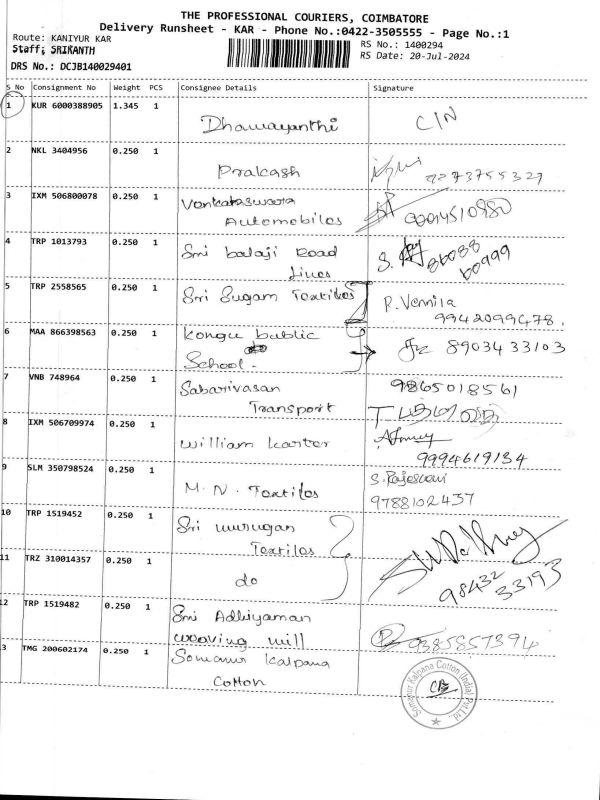 THE PROFESSIONAL COURIERS, COIMBATORE
Delivery Runsheet - KAR - Phone No.:0422-3505555 - Page No.:1
Route: KANIYUR KAR
RS No.: 1400294
Staff: SRIKANTH
RS Date: 20-Jul-2024
DRS No.: DCJB140029401
S_No Consignment No Weight PCS Consignee Details Signature
1 KUR 6000388905 1.345 1
Dhamayanthi C/N
2 NKL 3404956 0.250 1
Prakash
3 IXM 506800078 0.250 1 Venkateswara
Automobiles
4 TRP 1013793 0.250 1 Sri balaji Road S.
Lines
5 TRP 2558565 0.250 1 Sri Sugam Textiles P. Vennila
9942099478.
6 MAA 866398563 0.250 1 Kongu bublic
School. 8903433103
7 VNB 748964 0.250 1 Sabarivasan 9865018561
Transport
8 IXM 506709974 0.250 1
William Karter 9994619134
9 SLM 350798524 0.250 1 S. Rajeswari
M. N. Textiles 9788102437
10 TRP 1519452 0.250 1 Sri murugan
Textiles
11 TRZ 310014357 0.250 1
do 98432
33193
12 TRP 1519482 0.250 1 Sri Adhiyaman
weaving mill 9385857394
3 TMG 200602174 0.250 1 Somanur Kalpana
Cotton
Somanur Kalpana Cotton (India) Pvt.Ltd.,